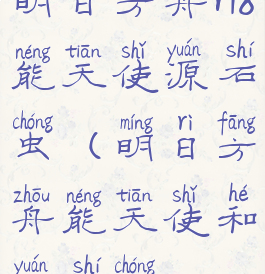 明日方舟
néng tiān shǐ yuán shí
能天使源石
chóng míng rì fāng
虫(明日方
zhōu néng tiān shǐ hé
舟能天使和
yuán shí chóng